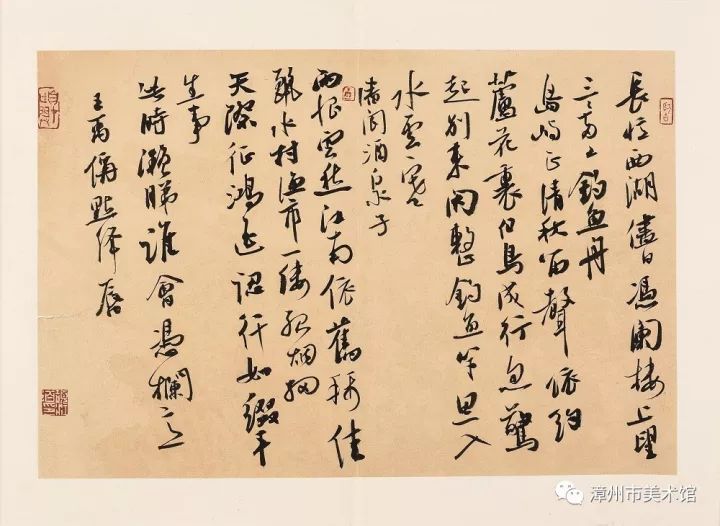 長憶西湖盡日憑闌樓上望
三〻兩〻釣魚舟
島嶼正清秋笛聲依約
蘆花裏白鳥成行忽驚
起別來閑整釣魚竿思入
水雲寒
潘閬酒泉子
雨恨雲愁江南依舊稱佳
麗水村漁市一縷孤烟細
天際征鴻遙認行如綴平
生事
此時凝睇誰會憑欄意
王禹偁點絳唇
漳州市美术馆